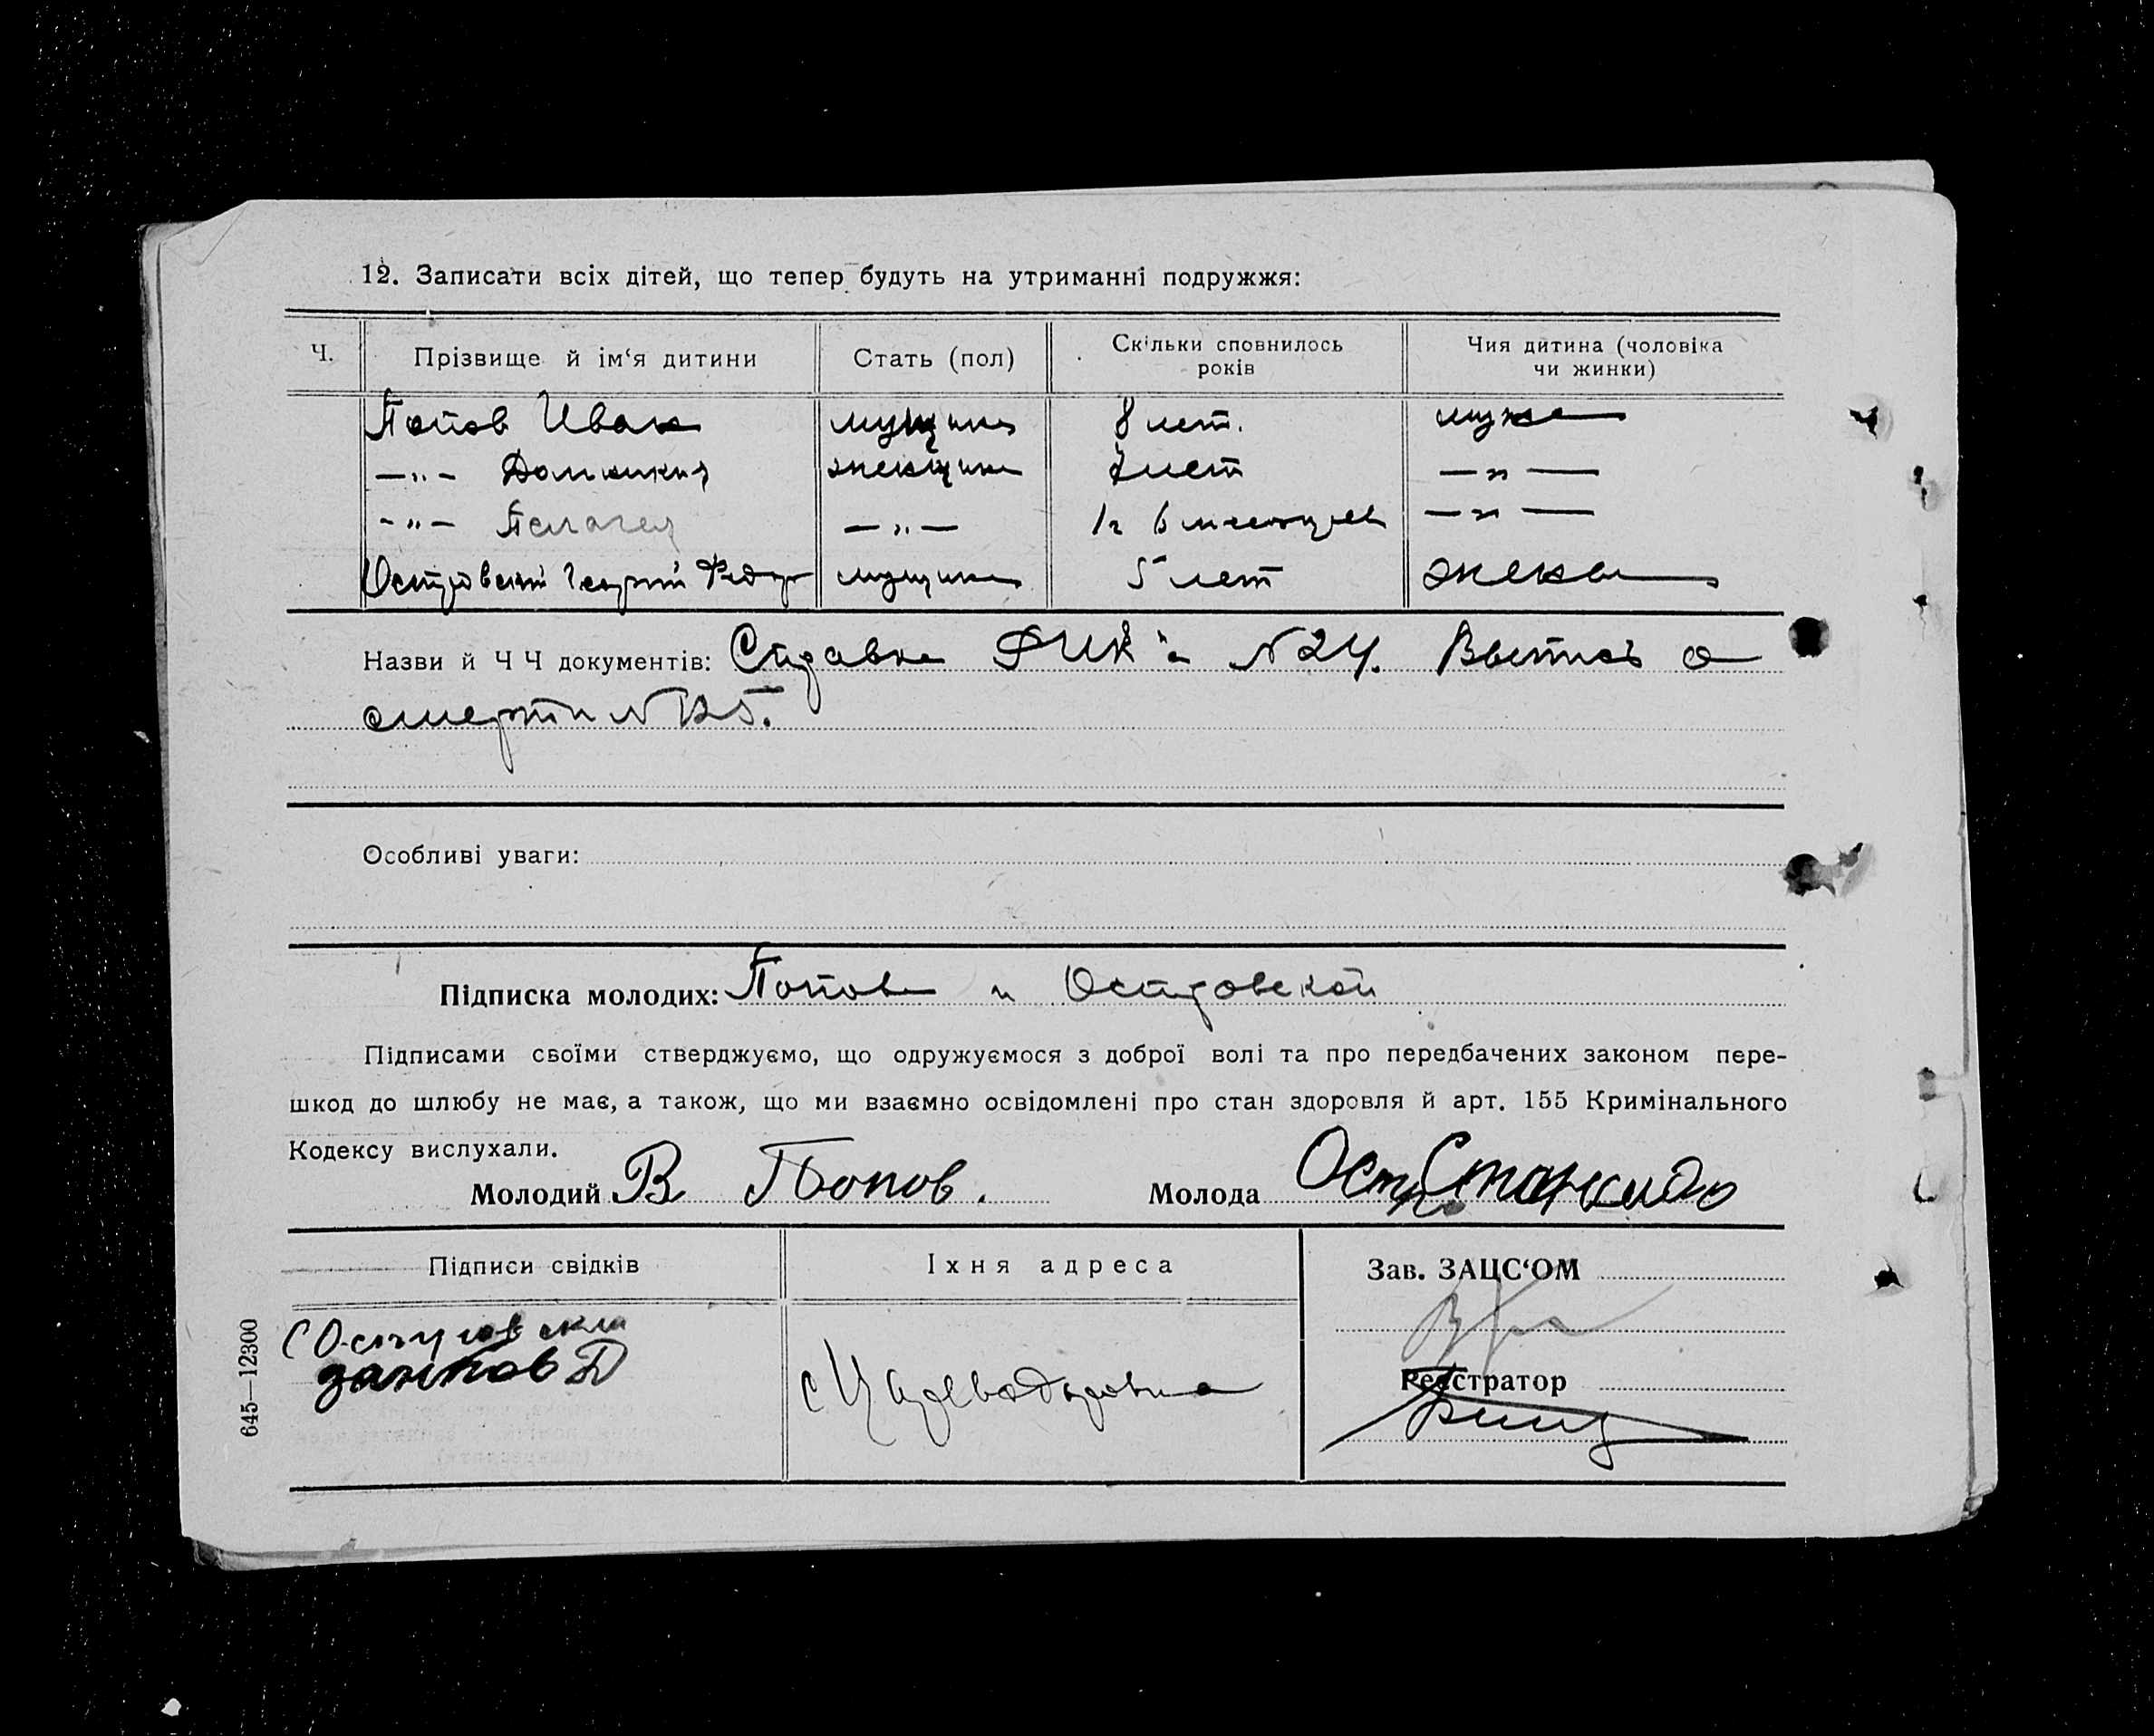 12. Записати всіх дітей, що тепер будуть на утриманні подружжя:
Ч. Прізвище й ім‘я дитини Стать (пол) Скільки сповнилось років Чия дитина (чоловіка чи жинки)
Попов Иван мущина 8 лет. мужа
—„— Доминикия женщина 7 лет —„—
—„— Пелагея —„— 1 г 6 месяцев —„—
Островский Георгий Федор мущина 5 лет жены
Назви й ЧЧ документів: Справка РИК'а №24. Выпись о
смерти №125.
Особливі уваги:
Підписка молодих: Попов и Островской
Підписами своїми стверджуємо, що одружуємося з доброї волі та про передбачених законом пере-
шкод до шлюбу не має, а також, що ми взаємно освідомлені про стан здоровля й арт. 155 Кримінального
Кодексу вислухали.
Молодий В Попов. Молода Остр
Підписи свідків Їхня адреса Зав. ЗАЦС‘ОМ
с
Реєстратор
645—12300